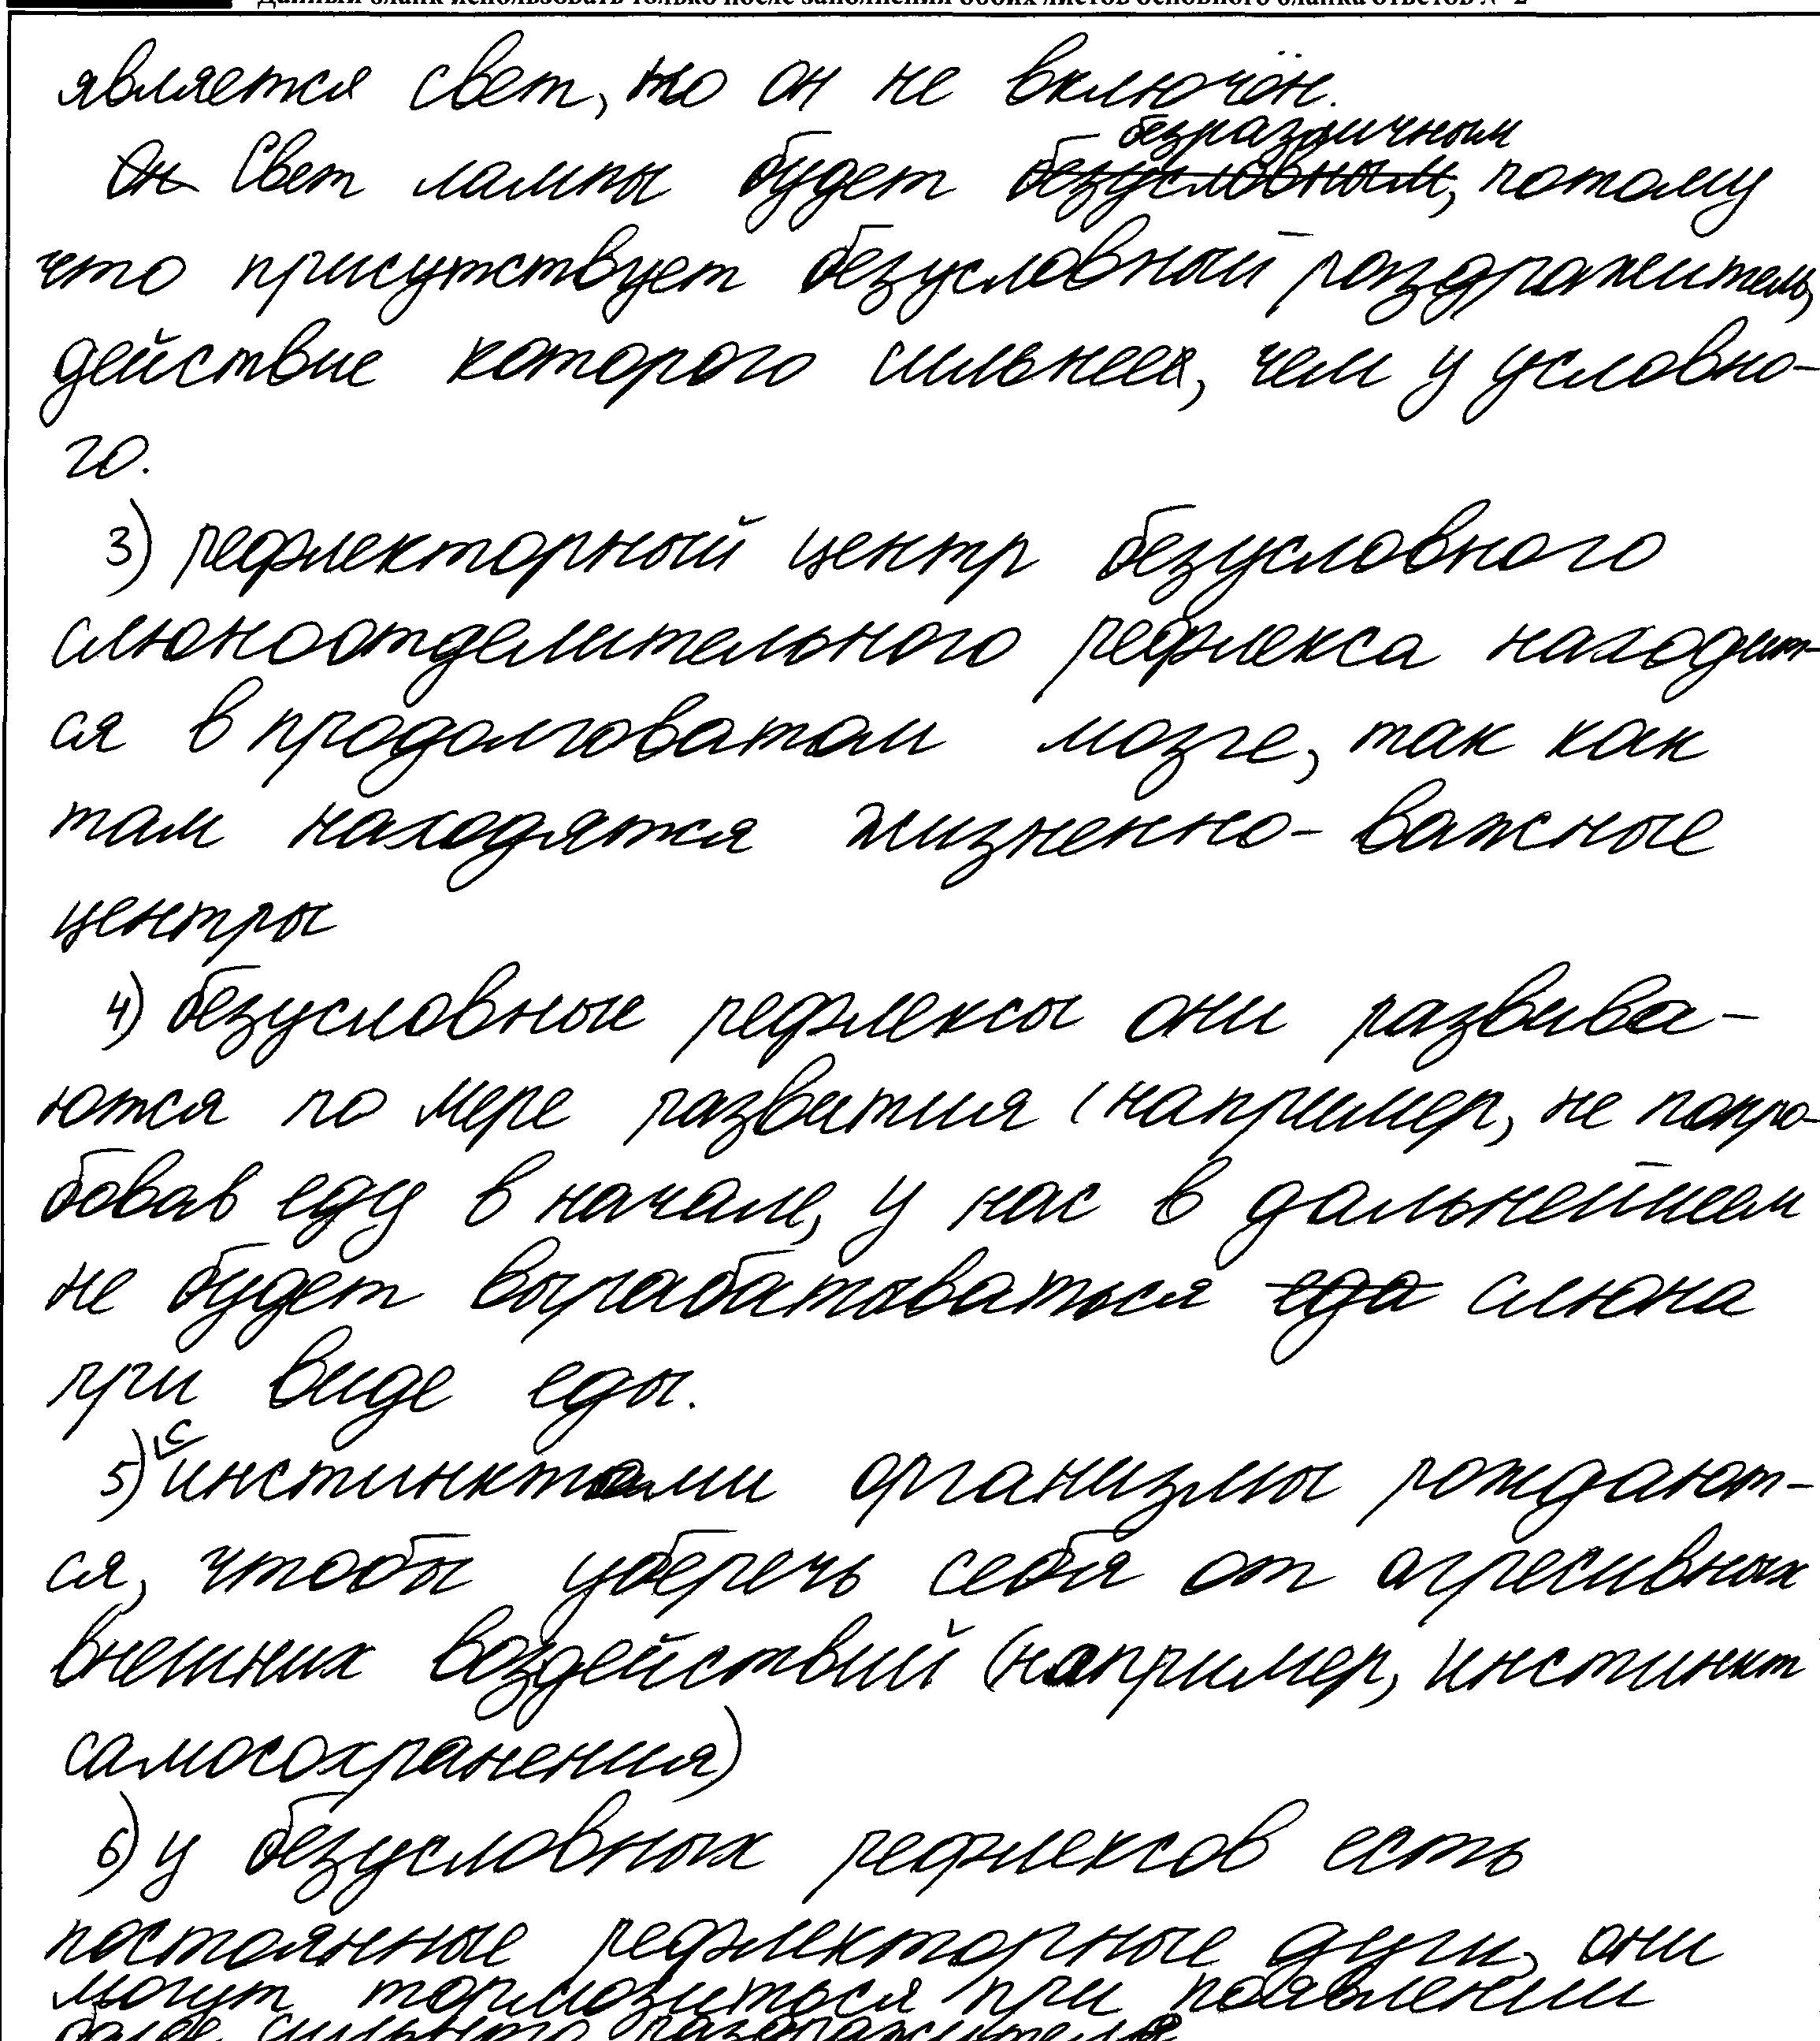 Данный бланк использовать только после заполнения обоих листов основного бланка ответов № 2
является свет, но он не включён.
безразличным
Он Свет лампы будет безусловным, потому
что присутствует безусловный раздражитель,
действие которого сильнее, чем у условно-
го.
3) рефлекторный центр безусловного
слюноотделительного рефлекса находит-
ся в продолговатом мозге, так как
там находятся жизненно-важные
центры
4) безусловные рефлексы они развива-
ются по мере развития (например, не попро-
бовав еду в начале, у нас в дальнейшем
не будет вырабатываться еда слюна
при виде еды.
5) с инстинктами организмы рождают-
ся, чтобы уберечь себя от агресивных
внешних воздействий (например, инстинкт
самосохранения)
6) у безусловных рефлексов есть
постоянные рефлекторные дуги, они
могут тормозиться при появлении
более сильного раздражителя